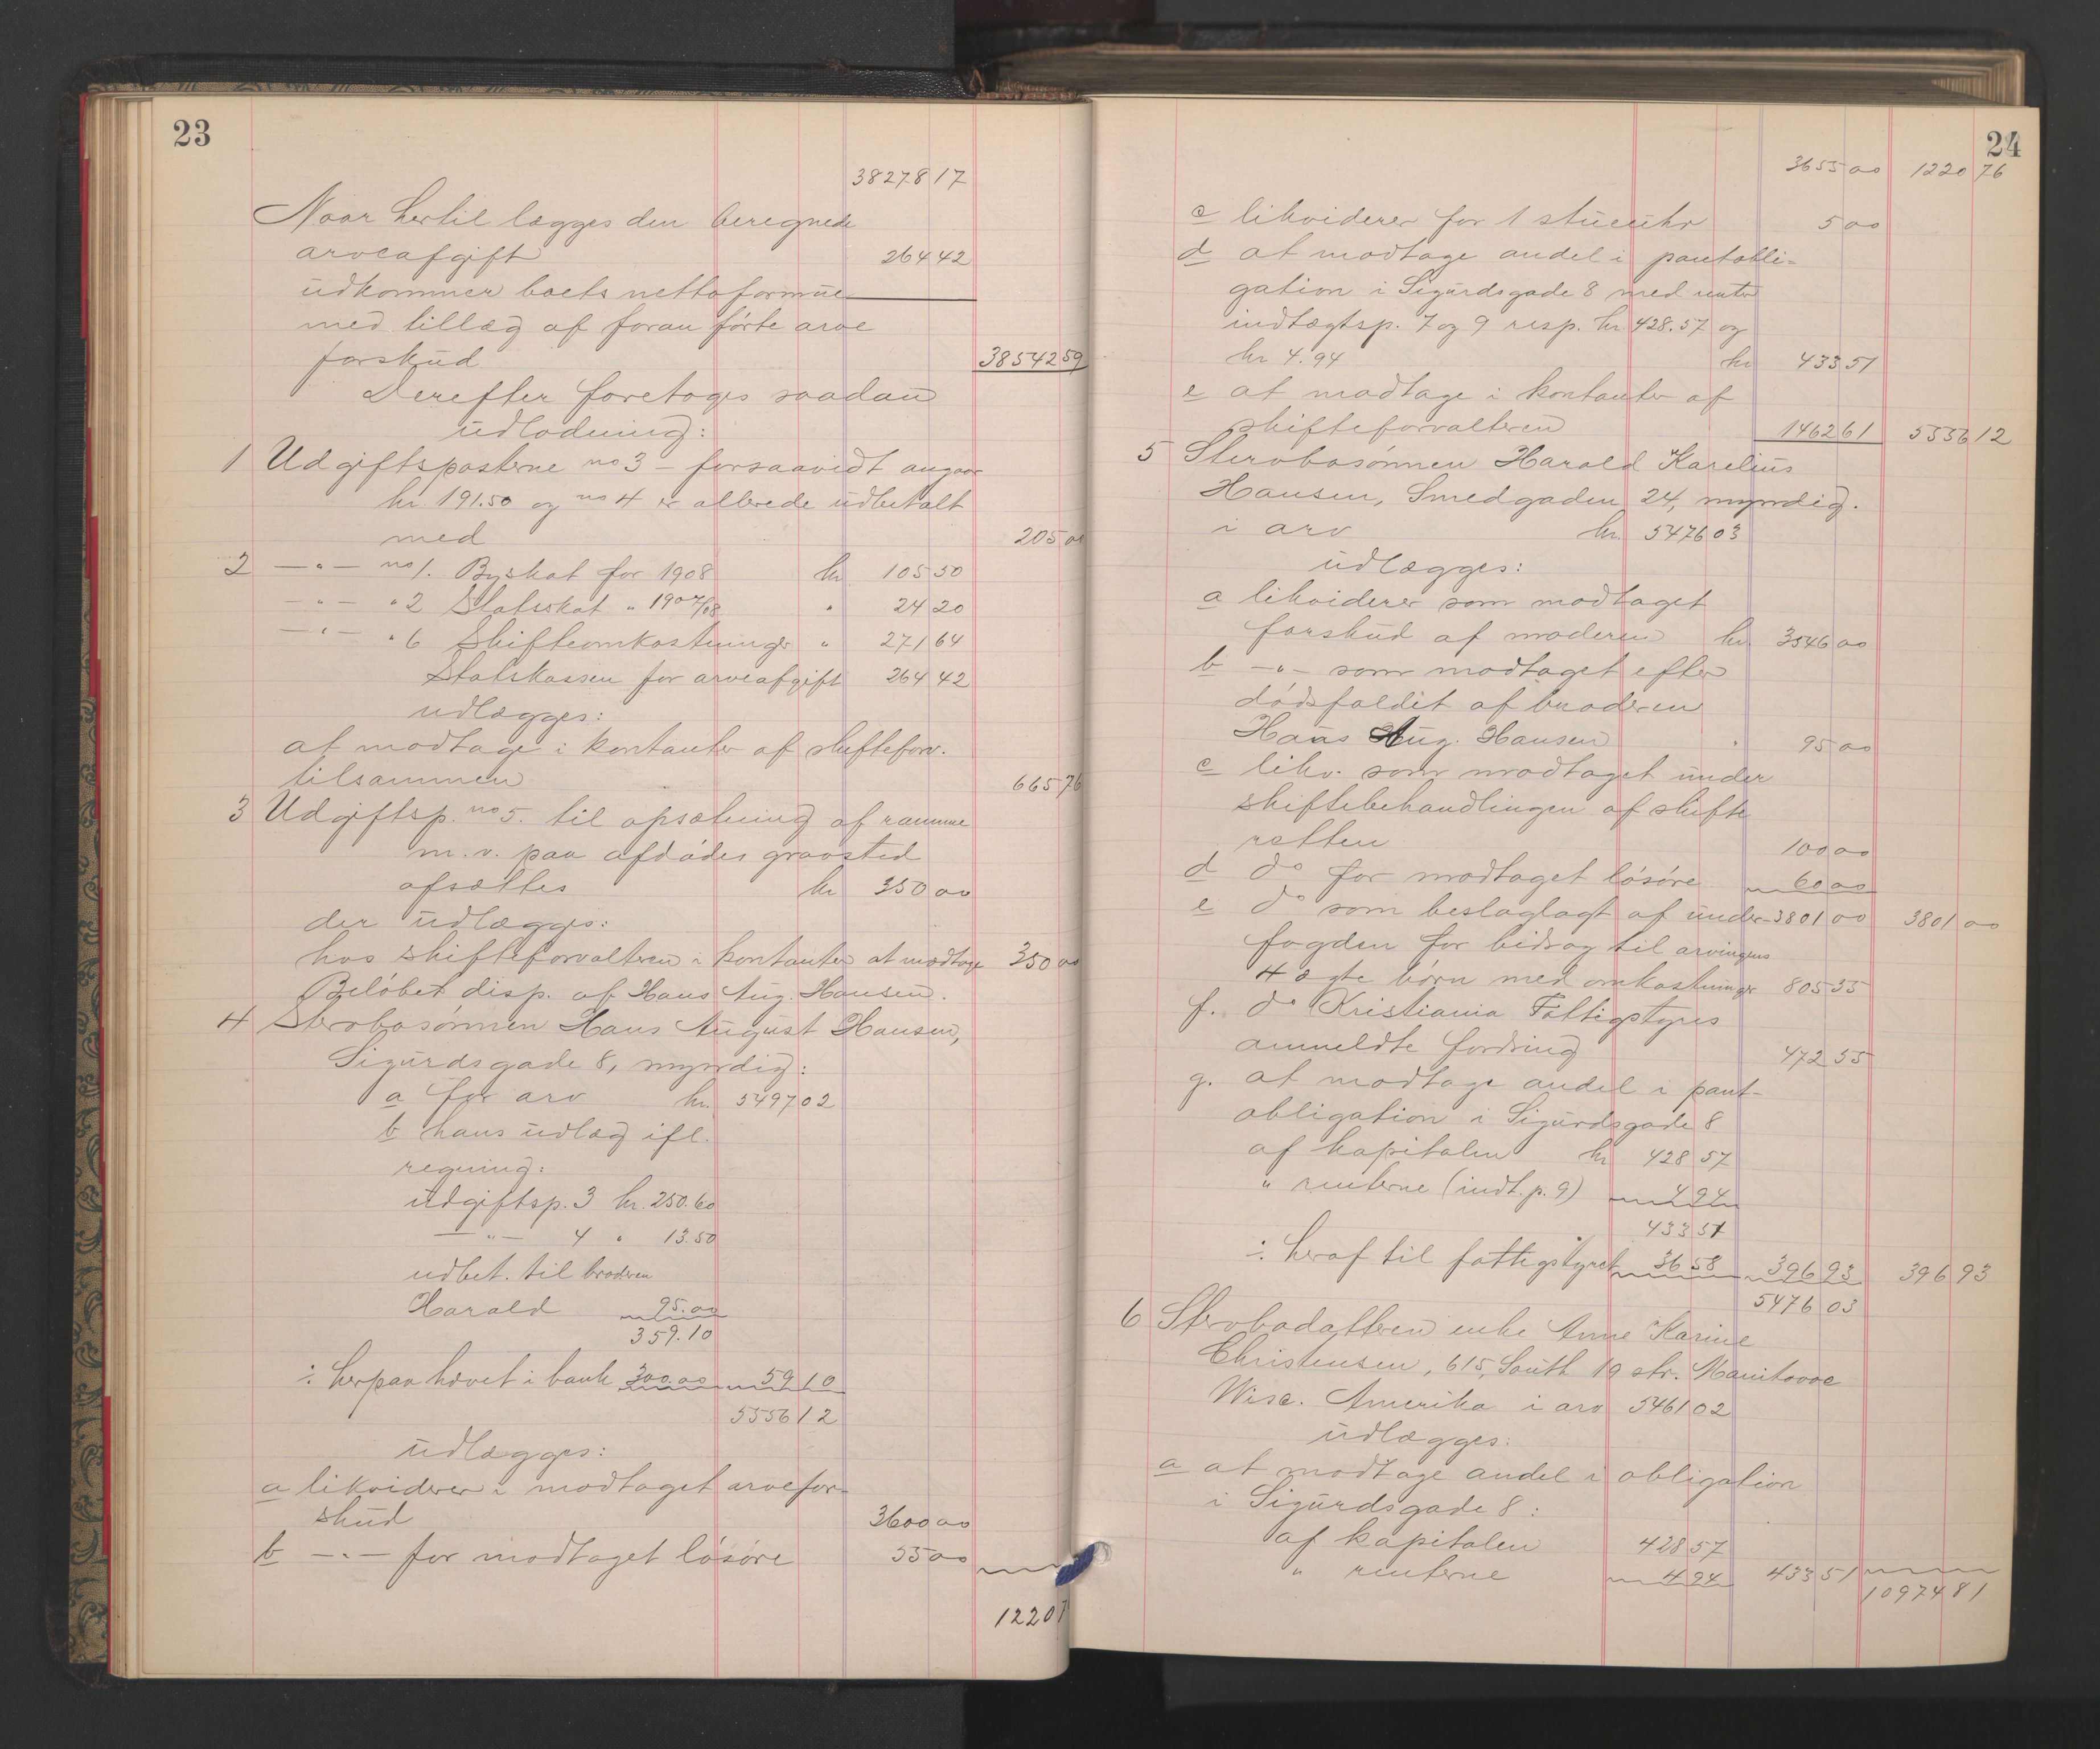 23
38278 17
Naar hertil lægges den beregnede
arveafgift 264 42
udkommer boets nettoformue
med tillæg af foran førte arve
forskud 38542 59
Derefter foretoges saadan
udlodning:
1 Udgiftsposterne no 3 – forsaavidt angaar
kr. 191.50 og no 4 er allerede udbetalt
med 205 00
2 —"— no 1. Byskat for 1908 kr 105 50
—"— " 2 Statsskat " 1907/08 " 24 20
—"— " 6 Skifteomkostninger " 271 64
Statskassen for arveafgift 264 42
udlægges:
at modtage i kontanter af skifteforv.
tilsammen 665 76
3 Udgiftsp. no 5. til opsætning af ramme
m. v. paa afdødes gravsted
afsættes kr 350 00
der udlægges:
hos skifteforvalteren i kontanter at modtage 350 00
Beløbet disp. af Hans Aug. Hansen.
4 Stervbosønnen Hans August Hansen,
Sigurdsgade 8, myndig:
a for arv kr. 5497 02
b hans udlæg ifl.
regning:
udgiftsp. 3 kr. 250.60
—"— 4 " 13.50
udbet. til broderen
Harald 95.00
359.10
÷ herpaa hævet i bank 300.00 59 10
5556 12
udlægges:
a likviderer i modtaget arvefor-
skud 3600 00
b —"— for modtaget løsøre 55 00
1220 7
24
3655 00 1220 76
c likviderer for 1 stueuhr 5 00
d at modtage andel i pantobli=
gation i Sigurdsgade 8 med renter
indtægtsp. 7 og 9 resp. kr 428.57 og
kr 4.94 kr 433 51
e at modtage i kontanter af
skifteforvalteren 1462 61 5556 12
5 Stervbosønnen Harald Karelius
Hansen, Smedgaden 24, myndig.
i arv kr. 5476 03
udlægges:
a likviderer som modtaget
forskud af moderen kr. 3546 00
b —"— som modtaget efter
dødsfaldet af broderen
Hans Aug. Hansen " 95 00
c likv. som modtaget under
skiftebehandlingen af skifte
retten 100 00
d do for modtaget løsøre 60 00
e do som beslaglagt af under- 3801 00 3801 00
fogden for bidrag til arvingens
4 ægte børn med omkostninger 805 55
f. do Kristiania Fattigstyres
anmeldte fordring 472 55
g. at modtage andel i pant-
obligation i Sigurdsgade 8
af kapitalen kr 428 57
" renterne (indt. p. 9) 4 94
433 51
÷ heraf til fattigstyret 36 58 396 93 396 93
5476 03
6 Stervbodatteren enke Anne Karine
Christensen, 615, South 19 str. Manitovoc
Wisc. Amerika i arv 5461 02
udlægges:
a at modtage andel i obligation
i Sigurdsgade 8:
af kapitalen 428 57
" renterne 4 94 433 51
10974 81